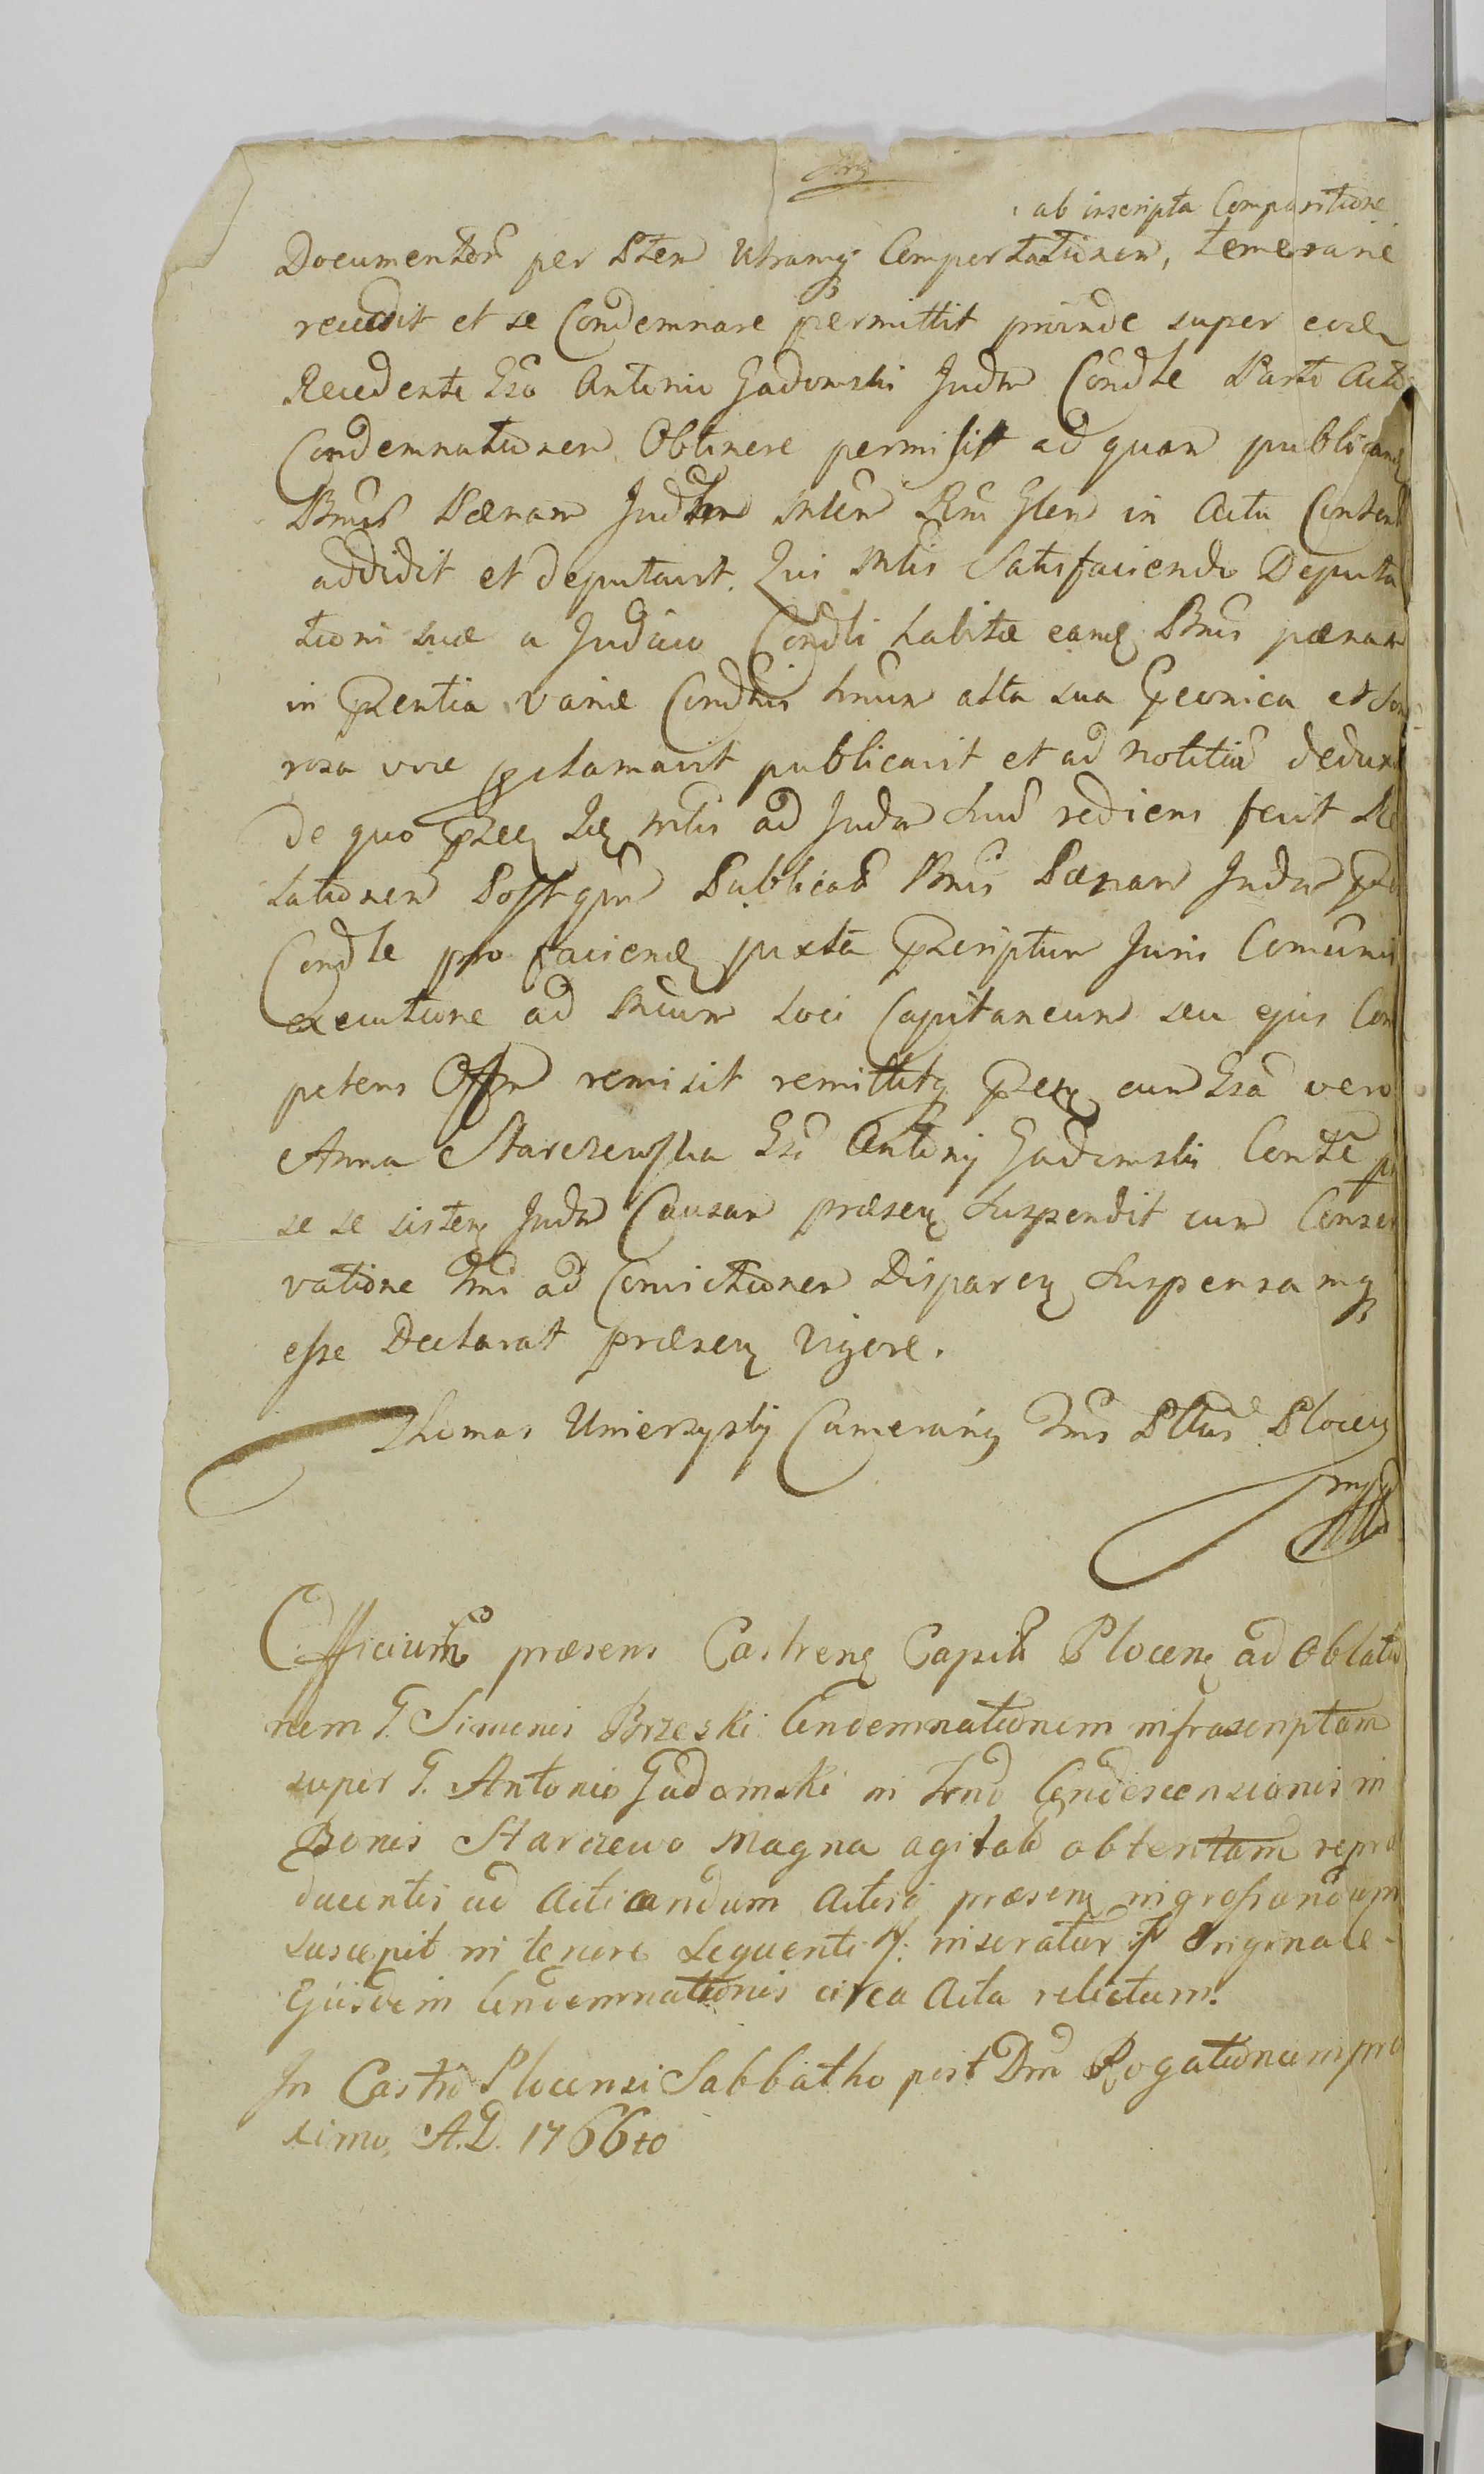 ab inscripta Comparitione
Documentorũ per Ptem Utramq Comportationem, temerarie
recedit et se Condemnare permittit proinde super eode
Recedente Gso Antonio Gadomski Judm Condle Parti Acto
Condemnationem Obtinere permisit ad quam publicand
Bnis Pænam Judm Mlem Rni Glem in Actu Content
addidit et deputavit. Qui Mlis Satisfaciendo Deputa
tioni suæ a Judicio Condli habitæ eand Bnis pænam
in Præntia variæ Condnis hnum alta sua Geonica et Son
rosa voce proclamavit publicavit et ad notitiã deduxit
de quo præs Mlis ad Judm hud rediens fecit Re
lationem Post qm Publicatã Bnis Pænam Judm
Condle pro faciend juxta Præscriptum Juris Comunis
executione ad Mcum Loci Capitaneum seu ejus Com
petens Offm remisit remittitq eum Gsa vero
Anna Starczewska Gsi Antonij Gadomski Conte
se se sisten Judm Causam præsen Suspendit cum Conser
vatione Tmi ad Convictionem Disparen Suspensamq
esse Declarat præsen Vigore.
Thomas Umierzyski Camerariq Tris Pltus Plocen
mp
Officium præsens Castren Capitle Plocen ad Oblatio
nem G. Simonis Brzeski Condemnationem infrascriptam
super G. Antonio Gadomski in Tmo Condescensionis in
Bonis Starczewo Magna agitato obtentam repro
ducentis ad Acticandum Actisq præsen ingrossandum
suscepit in tenore Sequenti inseratur Originale
Ejusdem Condemnationis circa Acta relictum.
In Castro Plocensi Sabbatho post Dm Rogationum pro
ximo, A.D. 1766to